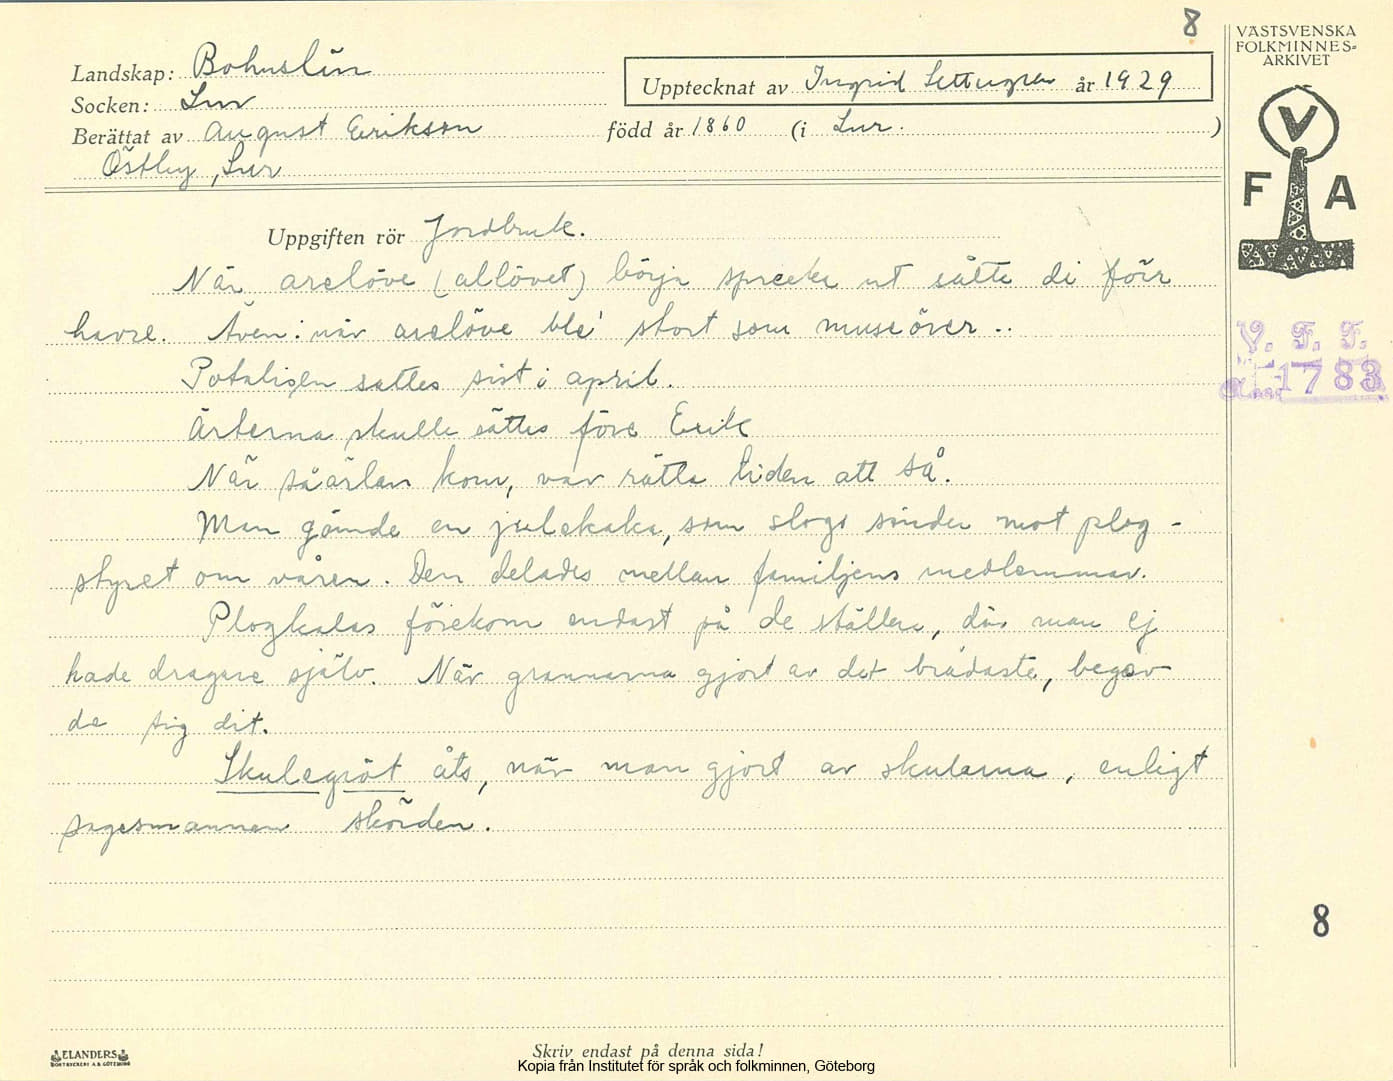 8
VÄSTSVENSKA
FOLKMINNES=
ARKIVET
Landskap: Bohuslän
Upptecknat av Ingrid år 1929
Socken: Lur
Berättat av August Erikson född år 1860 (i Lur. )
Östby, Lur
V
F A
Uppgiften rör Jordbruk.
När areløve (alløvet) börja spreeka ut sätte di förr
havre. Även: når areløve ble' stort som museörer..
Potatisen sattes sist i april.
Ärterna skulle sättes före Erik
När såärlan kom, var rätta tiden att så.
Man gömde en julekaka, som slogs sönder mot plog-
styret om våren. Den delades mellan familjens medlemmar.
Plogkalas förekom endast på de ställen, där man ej
hade dragare själv. När grannarna gjort av det brådaste, begav
de sig dit.
Skulegröt åts, när man gjort av skularna, enligt
sagesmannen skörden.
V. F. F.
1783
8
ELANDERS
BOKTRYCKERI A.B. GÖTEBORG
Skriv endast på denna sida!
Kopia från Institutet för språk och folkminnen, Göteborg